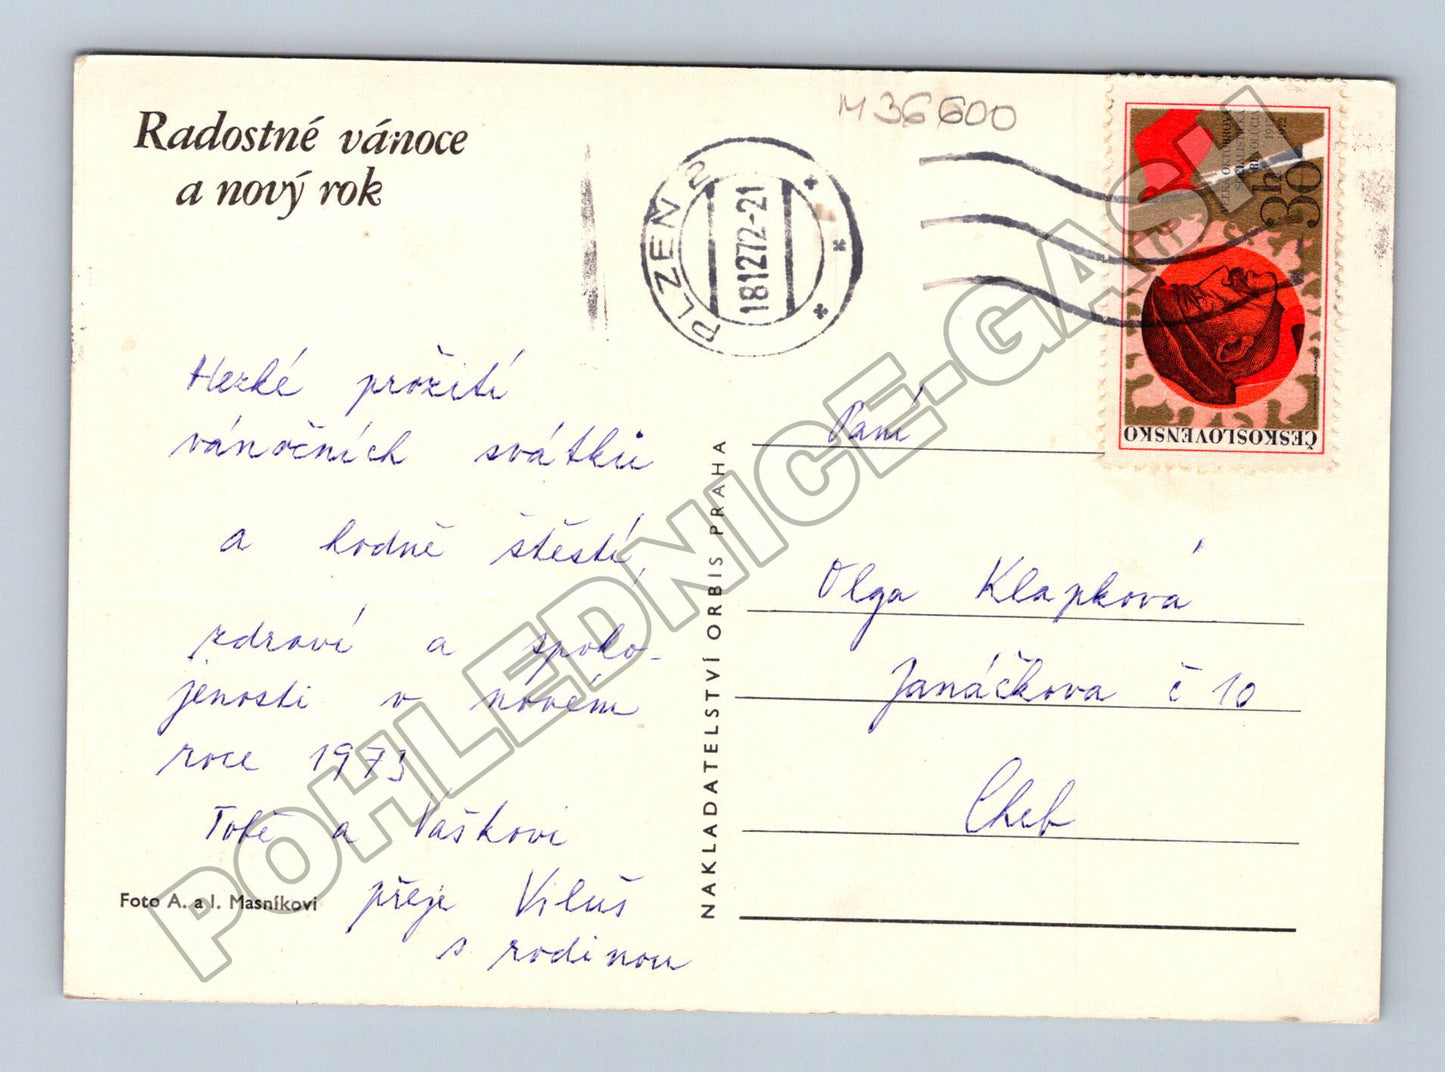 Radostné vánoce
a nový rok
M 36600
PLZEŇ 2
181272-21
VELKÁ ŘÍJNOVÁ
SOCIALISTICKÁ
REVOLÚCIA
1917
1972
30h
ČESKOSLOVENSKO
Hezké prožití
vánočních svátků
a hodně štěstí,
zdraví a spoko-
jenosti v novém
roce 1973
Tobě a Vaškovi
přeje Viluš
s rodinou
Foto A. a I. Masníkovi
NAKLADATELSTVÍ ORBIS PRAHA
Paní
Olga Klapková
Janáčkova č 10
Cheb
POHLEDNICE-GASH